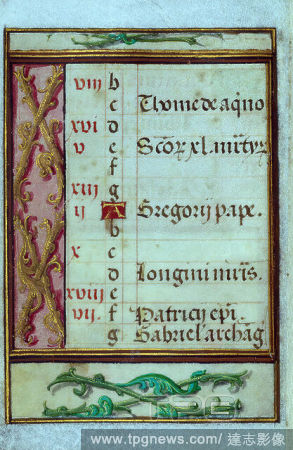 viij b
c Thome de aq̃no
xvi d
v e Sco℞ xl. mr̃ty℞
f
xiij g
ij A Gregorij pape.
b
x c
d Longini mr̃is.
xviij e
vij. f Patricij ep̃i
g Gabriel archãg
TPG
www.tpgnews.com / 達志影像